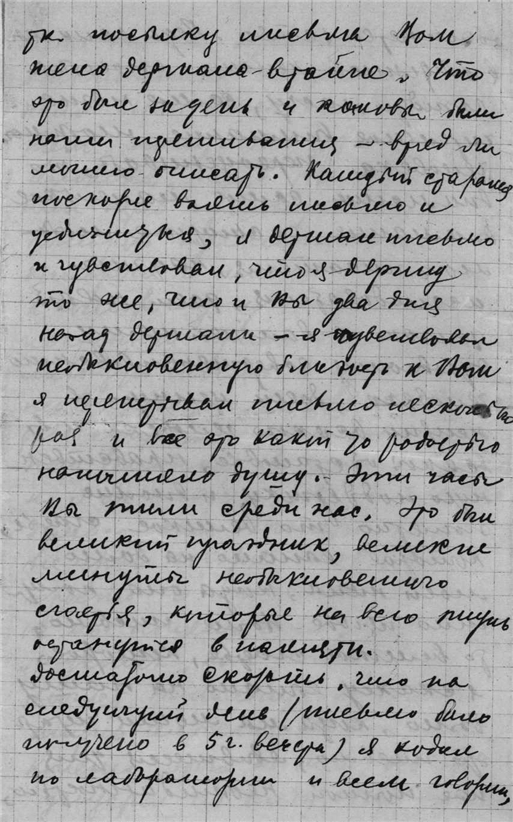 тк посылку письма Вам
жена держала втайне. Что
это был за день и каковы были
наши переживания – вряд ли
можно описать. Каждый старался
поскорее взять письмо и
убедиться, я держал письмо
и чувствовал, что я держу
то же, что и Вы два дня
назад держали – я чувствовал
необыкновенную близость к Вам
я перечитывал письмо несколько
раз и все это какой то радостью
наполняло душу. Эти часы
Вы жили среди нас. Это был
великий праздник, великие
минуты необыкновенного
счастья, которые на всю жизнь
останутся в памяти.
достаточно сказать, что на
следующий день (письмо было
получено в 5 г. вечера) я ходил
по лаборатории и всем говорил,